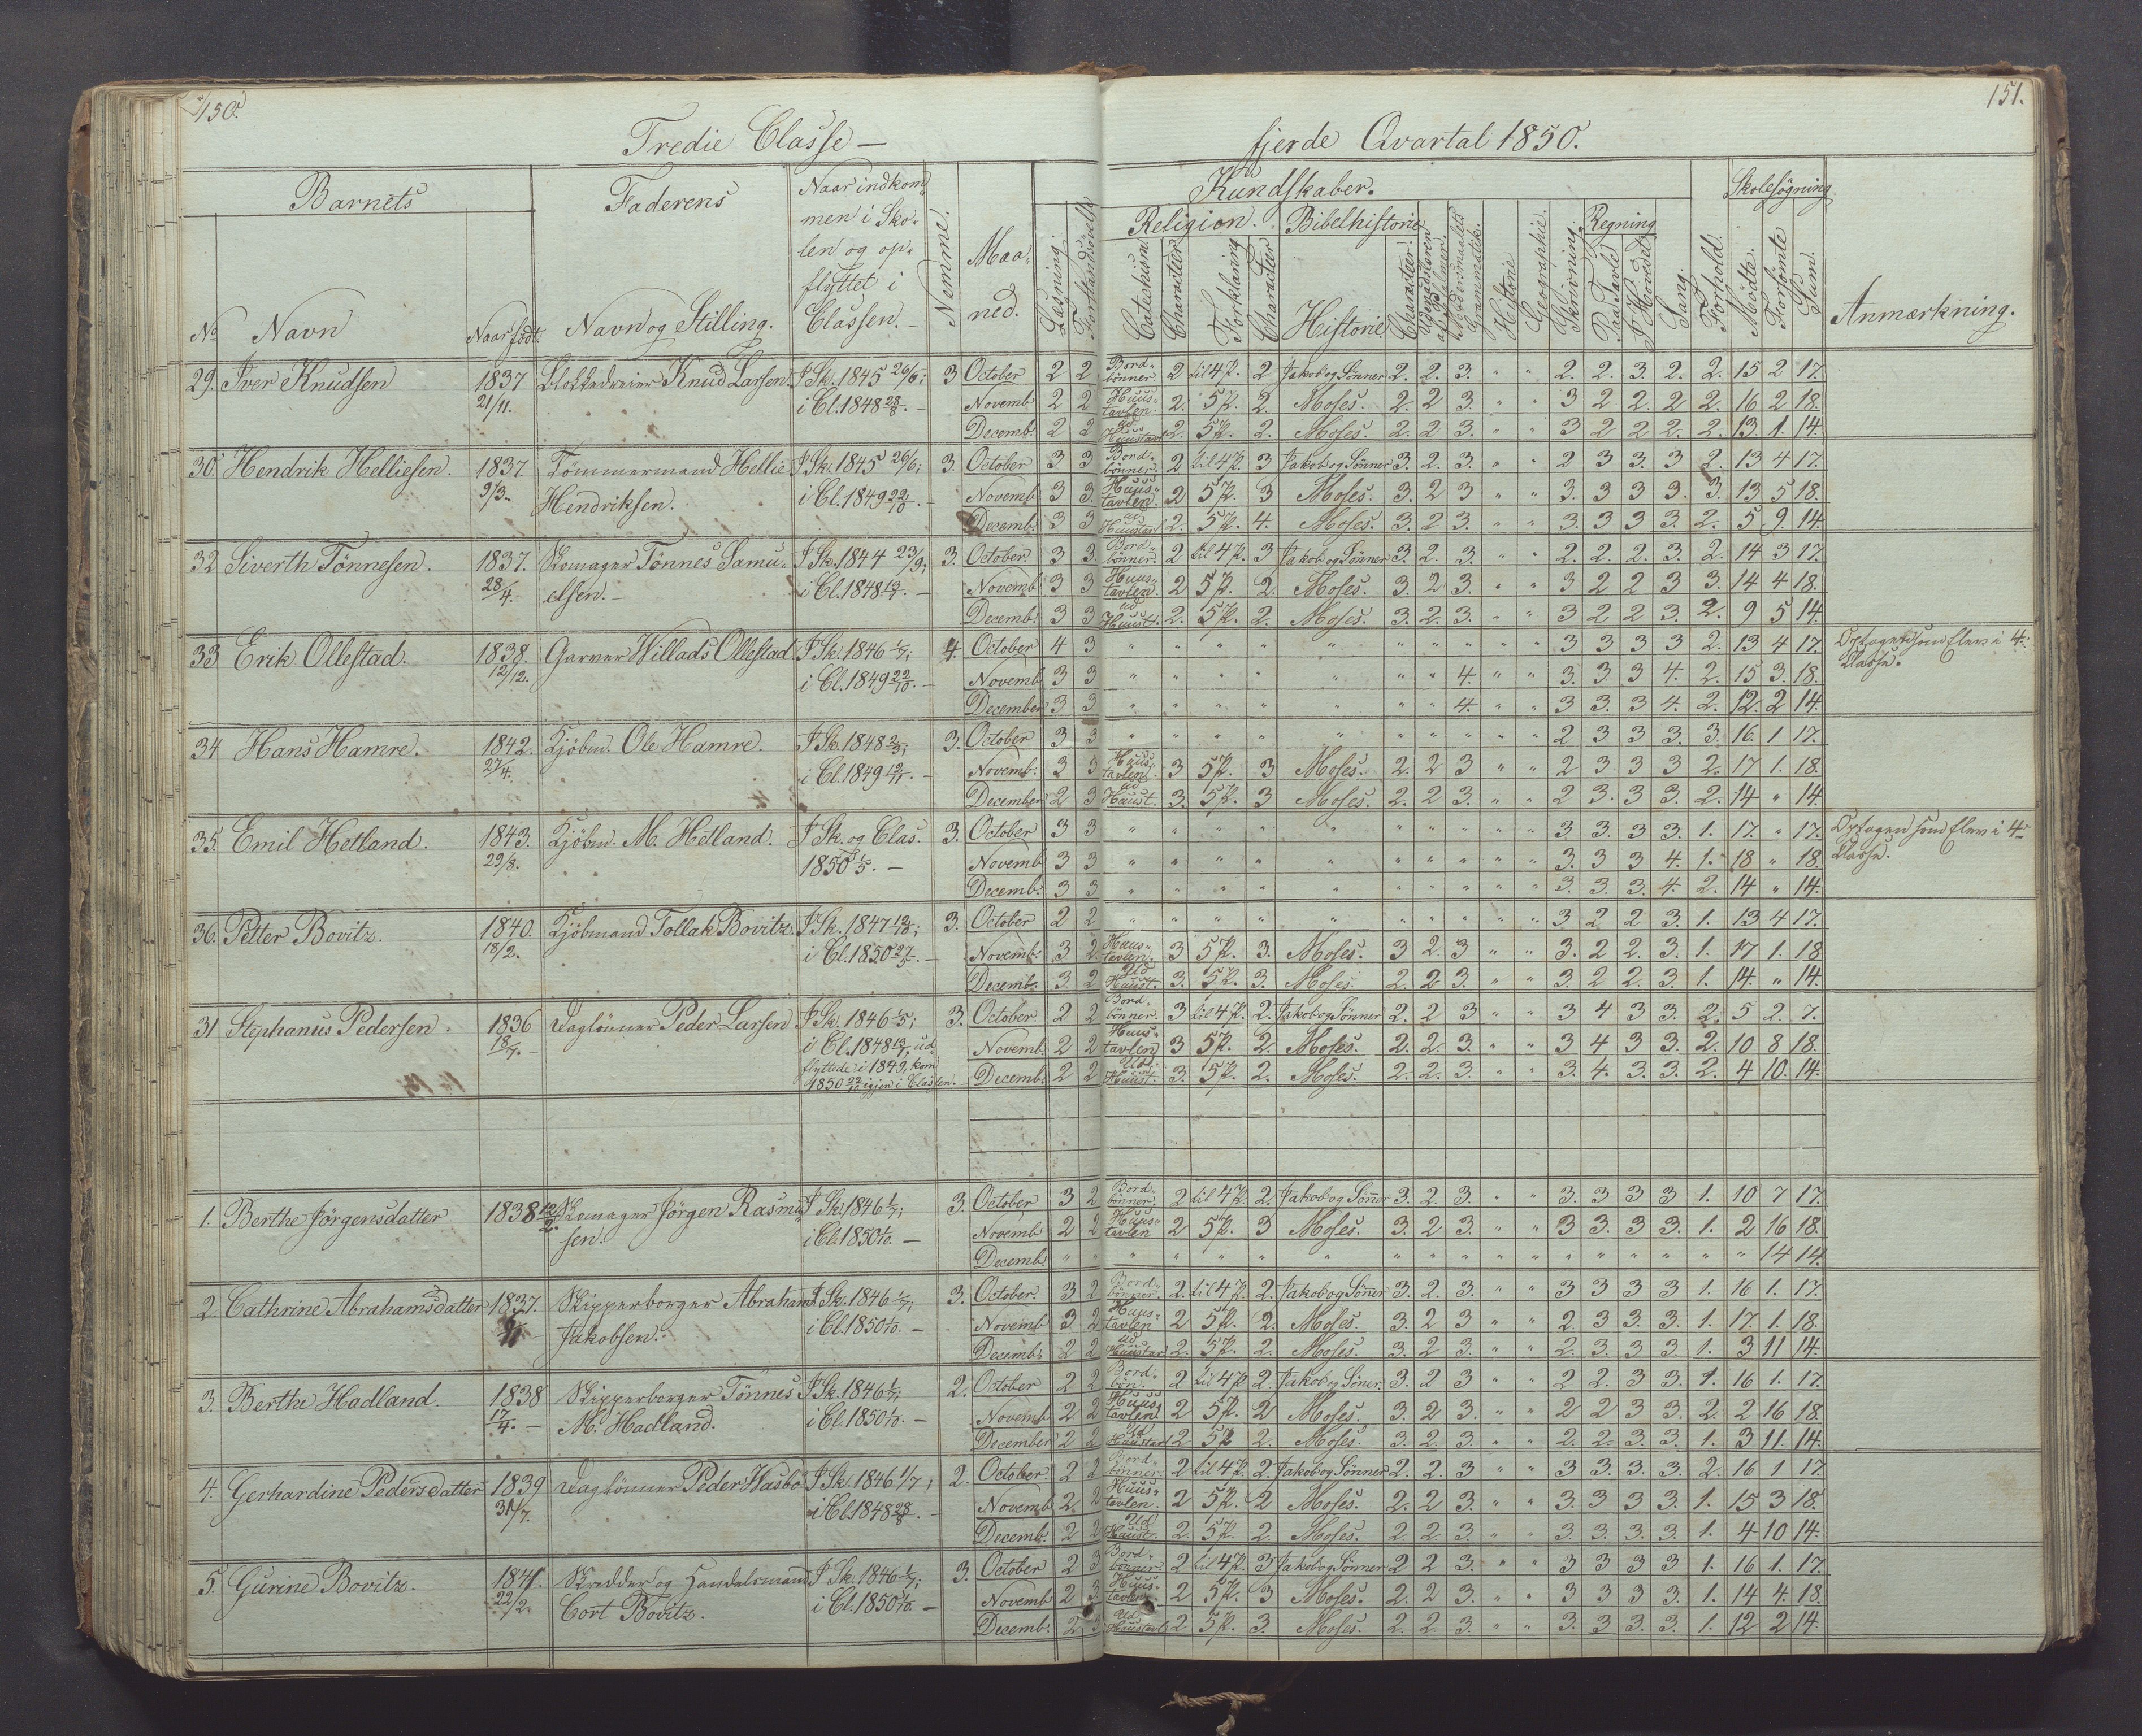 150.
151.
Tredie Classe —
fjerde Qvartal 1850.
Barnets
Faderens
Naar indkom
men i Sko-
len og op-
flyttet i
Classen. -
Nemme.
Maa-
ned.
Kundskaber.
Skolesøgning
Religion.
Bibelhistorie
Regning
No
Navn
Naar født
Navn og Stilling.
Læsning.
Catechism.
Character
Forklaring
Character
Historie
Character.
Historie
Geographie.
Skrivning.
Paa Tavle
I Hovedet
Sang.
Forhold.
Mødte.
Forsømte
Sum.
Anmærkning.
29. Iver Knudsen 1837 Blokkedreier Knud Larsen. I Sk. 1845 26/6; 3 October 2 2 Bord- bønner 2 til 4 P. 2 Jakob og Sønner 2. 2. 3. " " 2. 2. 3. 2. 2. 15 2 17.
21/11. i Cl. 1848 28/8. - Novemb. 2 2 Huus- tavlen. 2. 5 P. 2. Moses. 2. 2 3. " " 3 2 2. 2 2. 16 2 18.
Decemb. 2 2 ud Huustavl 2. 5 P. 2. Moses. 2. 2 3. " " 3 2 2 2. 2. 13. 1. 14.
30. Hendrik Helliesen. 1837. Tømmermand Hellie I Sk. 1845 26/6; 3. October 3 3 Bord- bønner. 2 til 4 P. 3 Jakob og Sønner 3. 2. 3. " " 2 3 3. 3 2. 13 4 17.
9/3. Hendriksen. i Cl. 1849 22/10. - Novemb. 3 3. Huus- tavlen. 2 5 P. 3 Moses. 3. 2 3 " " 3. 3 3 3. 3. 13 5 18.
Decemb. 3 3 ud Huustavl 2. 5 P. 4. Moses. 3. 2 3. " " 3. 3 3 3. 2. 5 9. 14.
32 Siverth Tønnesen. 1837. Skomager Tønnes Samu- I Sk. 1844 23/9; 3. October. 3 3. Bord- bønner. 2 til 4 P. 3 Jakob og Sønner 3. 2. 3. " " 2. 2. 2. 3. 2. 14 3 17.
28/4. elsen. - i Cl. 1848 13/7. - Novemb. 3 3 Huus- tavlen. 2 5 P. 2. Moses. 3. 2 3. " " 3 2 2 3 3. 14 4 18.
Decemb. 3 3 ud Huust. 2. 5 P. 2. Moses. 3. 2. 3. " " 3 2 2 3. 2. 9 5 14.
33 Erik Ollestad. 1838. Garver Willads Ollestad I Sk. 1846 1/7; 4. October 4 3 " " " " " " " " " " 3 3 3 3 2. 13 4 17. Optagen som Elev i 4.
12/12. i Cl. 1849 22/10. - Novemb. 3 3 " " " " " " " 4. " " 3. 3. 3 4. 2. 15 3. 18. Classe.
December 3 3 " " " " " " " 4. " " 3 3. 3 4. 2. 12. 2 14.
34 Hans Hamre. 1842. Kjøbm. Ole Hamre. I Sk. 1848 2/3; 3. October 3 3 " " " " " " " " " " 2 3 3 3. 3. 16. 1 17.
27/4. i Cl. 1849 12/11. - Novemb. 3 3 Huus- tavlen. 3 5 P. 3 Moses. 2. 2 3 " " 2 3 3 3 2. 17 1. 18.
December 2 3 ud Huust. 3. 5 P. 3 Moses. 2. 2 3. " " 2 3. 3 3. 2. 14 " 14.
35. Emil Hetland. 1843. Kjøbm. M. Hetland. I Sk. og Clas. 3. October 3 3 " " " " " " " " " " 3 3. 3 3. 1. 17. " 17. Optagen som Elev i 4
29/8. 1850 1/5. - Novemb. 3 3 " " " " " " " " " " 3. 3 3 4. 1. 18 " 18. Classe.
Decemb. 3 3 " " " " " " " " " " 3. 3. 3. 4. 2. 14 " 14.
36. Petter Bovitz. 1840. Kjøbmand Tollak Bovitz. I Sk. 1847 13/10; 3. October 2 2 " " " " " " " " " " 3 2 2 3. 1. 13 4 17.
18/2. i Cl. 1850 27/5. - Novemb. 3 2. Huus- tavlen. 3 5 P. 3. Moses. 3 2. 3 " " 3. 2 2. 3. 1. 17 1. 18
Decemb. 3. 2 Ud Huust. 3. 5 P. 3. Moses. 2. 2 3. " " 3. 2 2. 3. 1. 14. " 14.
31 Stephanus Pedersen. 1836 Daglønner Peder Larsen I Sk. 1846 1/5; 3. October 2 2 Bord- bønner. 3 til 4 P. 2. Jakob og Sønner 2. 2 3 " " 3 4 3 3. 2. 5 2. 7.
18/7. - i Cl. 1848 13/7, ud- Novemb. 2 2 Huus- tavlen 3 5 P. 2. Moses. 2. 2. 3. " " 3 4 3 3. 2. 10 8 18.
flyttede i 1849, kom
1850 igjen i Classen. Decemb. 2 2 Ud Huust. 3. 5 P. 2. Moses. 2. 2. 3. " " 3. 4. 3. 3. 2. 4 10. 14.
1. Berthe Jørgensdatter 1838 Skomager Jørgen Rasmu- I Sk. 1846 1/7; 3. October 3 2 Bord- bønner. 2 til 4 P. 2. Jakob og Sønner 3. 2. 3. " " 3. 3 3 3 1. 10 7 17.
sen. i Cl. 1850 1/10. - Novemb 2 2 Huus- tavlen 2 5 P. 3 Moses. 3. 2 3. " " 3 3. 3. 3. 1. 2 16 18.
Decemb. " " " " " " " " " " " " " " " " " " 14 14.
2. Cathrine Abrahamsdatter 1837. Skipperborger Abraham I Sk. 1846 1/7; 3. October. 3 2 Bord- bønner. 2. til 4 P. 2. Jakob og Sønner 3. 2. 3. " " 3 3 3 3 1. 16 1. 17.
Jakobsen. i Cl. 1850 1/10. - Novemb. 3 2 Huus- tavlen 2 5 P. 2. Moses. 3. 2 3 " " 2. 3. 3. 3. 1. 17. 1. 18.
Decemb. 2 2 ud Huustavl 2. 5 P. 2. Moses. 3. 2 3. " " 2. 3. 3 3. 1. 3 11 14.
3. Berthe Hadland. 1838 Skipperborger Tønnes I Sk. 1846 1/7; 2. October 2 2 Bord- bøn. 2 til 4 P 2. Jakob og Sønner 3. 2 3 " " 2 2. 3 3. 1. 16 1. 17.
17/4. - M. Hadland. i Cl. 1850 1/10. - Novemb 2 2 Huus- tavlen 2 5 P. 2 Moses. 3. 2 3. " " 2 2 3 3. 2. 2 16 18.
December 2 2 Ud Huustavl 2 5 P 2. Moses. 3. 2. 3. " " 2. 2. 3. 3. 1. 3 11. 14.
4. Gerhardine Pedersdatter 1839 Daglønner Peder Wasbø I Sk. 1846 1/7; 2. October. 2 2 Bord- bønner. 2 til 4 P. 2. Jakob og Sønner 2. 2. 3 " " 3 3. 3. 3. 2. 16 1 17.
31/7. i Cl. 1848 28/8. - Novemb 2. 2 Huus- tavlen. 2 5 P. 2 Moses. 2. 2 3. " " 3. 3 3 3. 1. 15 3 18.
Decemb. 2 2 Ud Huust. 2. 5 P. 2. Moses. 2. 2 3. " " 3. 3. 3. 3. 1. 4 10 14.
5. Gurine Bovitz. 1841. Skredder og Handelsmand I Sk. 1846 1/7; 3. October 2 3 Bord- bønner 2 til 4 P. 3 Jakob og Sønner 2 2 3. " " 3 3 3 3 1. 16 1. 17.
22/2. Cort Bovitz. i Cl. 1850 1/10. - Novemb. 2 3. Huus- tavlen. 2 5 P. 3 Moses. 2. 2 3. " " 3 3 3 3. 1. 14 4. 18.
Decemb. 2. 3 Ud. Huustavl. 2 5 P. 3. Moses. 2. 2. 3. " " 3. 3 3. 3. 1. 12 2 14.